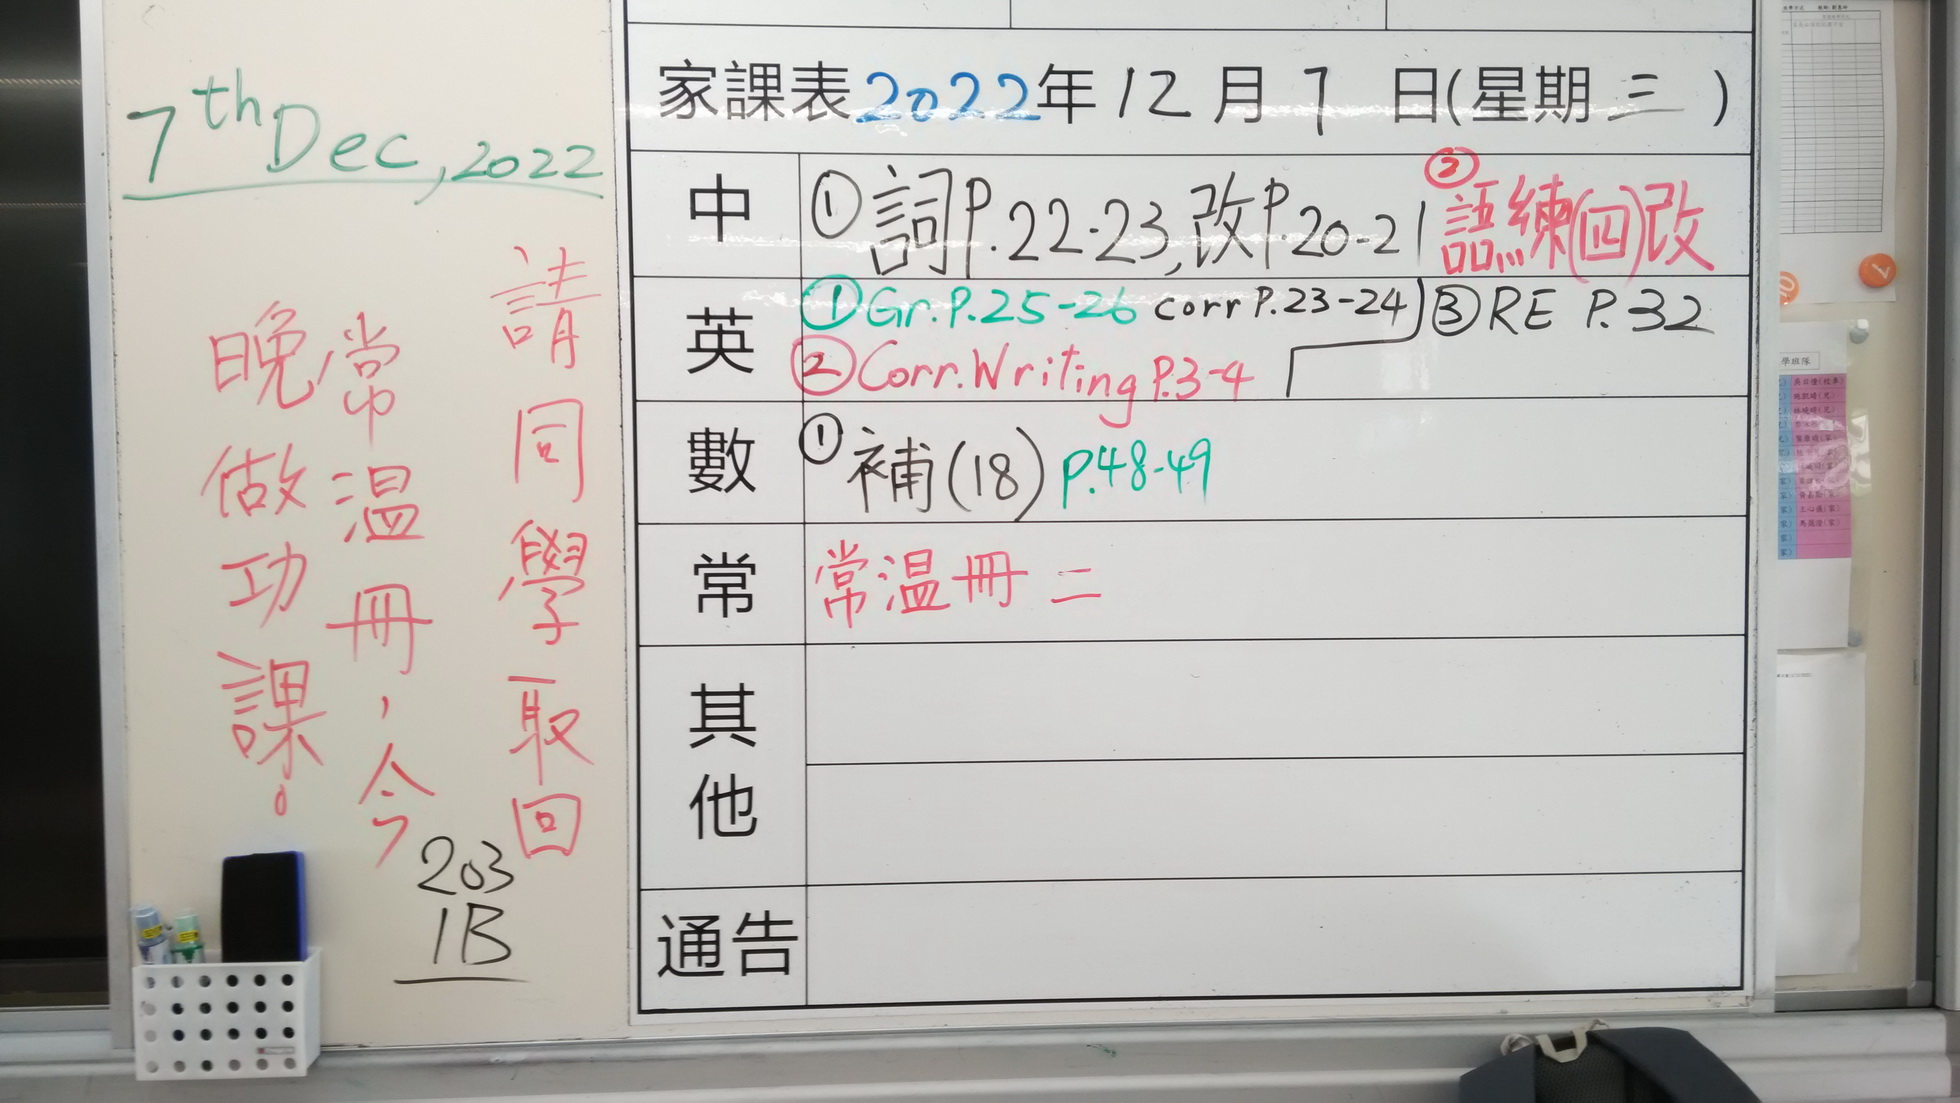 7th Dec, 2022
請同學取回
常温冊，今
晚做功課。
203
1B
家課表2022年12月7日(星期三)
中
①詞P.22-23,改P.20-21 ②語練(四)改
英
①Gr.P.25-26 corr P.23-24 ③RE P.32
②Corr.Writing P.3-4
數
①補(18) P.48-49
常
常温冊二
其他
通告
學班隊